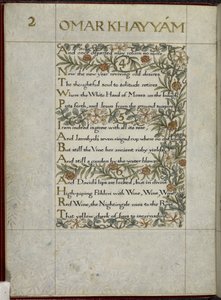 2 OMAR KHAYYÁM
4
Now the new year reviving old desires
The thoughtful soul to solitude retires
Where the White Hand of Moses on the
Puts forth, and Jesus from the ground
5
Iram indeed is gone with all its rose
And Jamshyd's seven-ringed cup where no
But still the Vine her ancient ruby yields
And still a garden by the water blows
6
And David's lips are lock't, but in divine
High-piping Pehlevi with Wine, Wine, W
Red Wine, the Nightingale cries to the R
That yellow cheek of hers to incarnadine